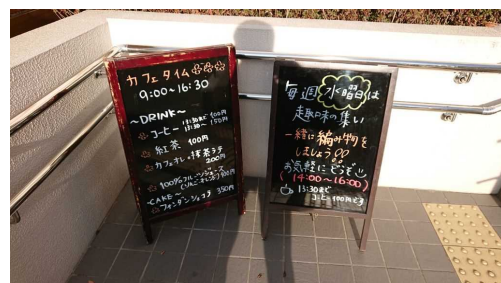 カフェタイム
9:00~16:30
~DRINK~
コーヒー 13:30まで 100円
13:30~ 150円
紅茶 100円
カフェオレ・抹茶ラテ
200円
100%フルーツジュース
~CAKE~
フォンダンショコラ 350円
毎週水曜日は
趣味の集い
一緒に編み物を
しましょう
お気軽にどうぞ
(14:00~16:00)
13:30まで
コーヒー100円です